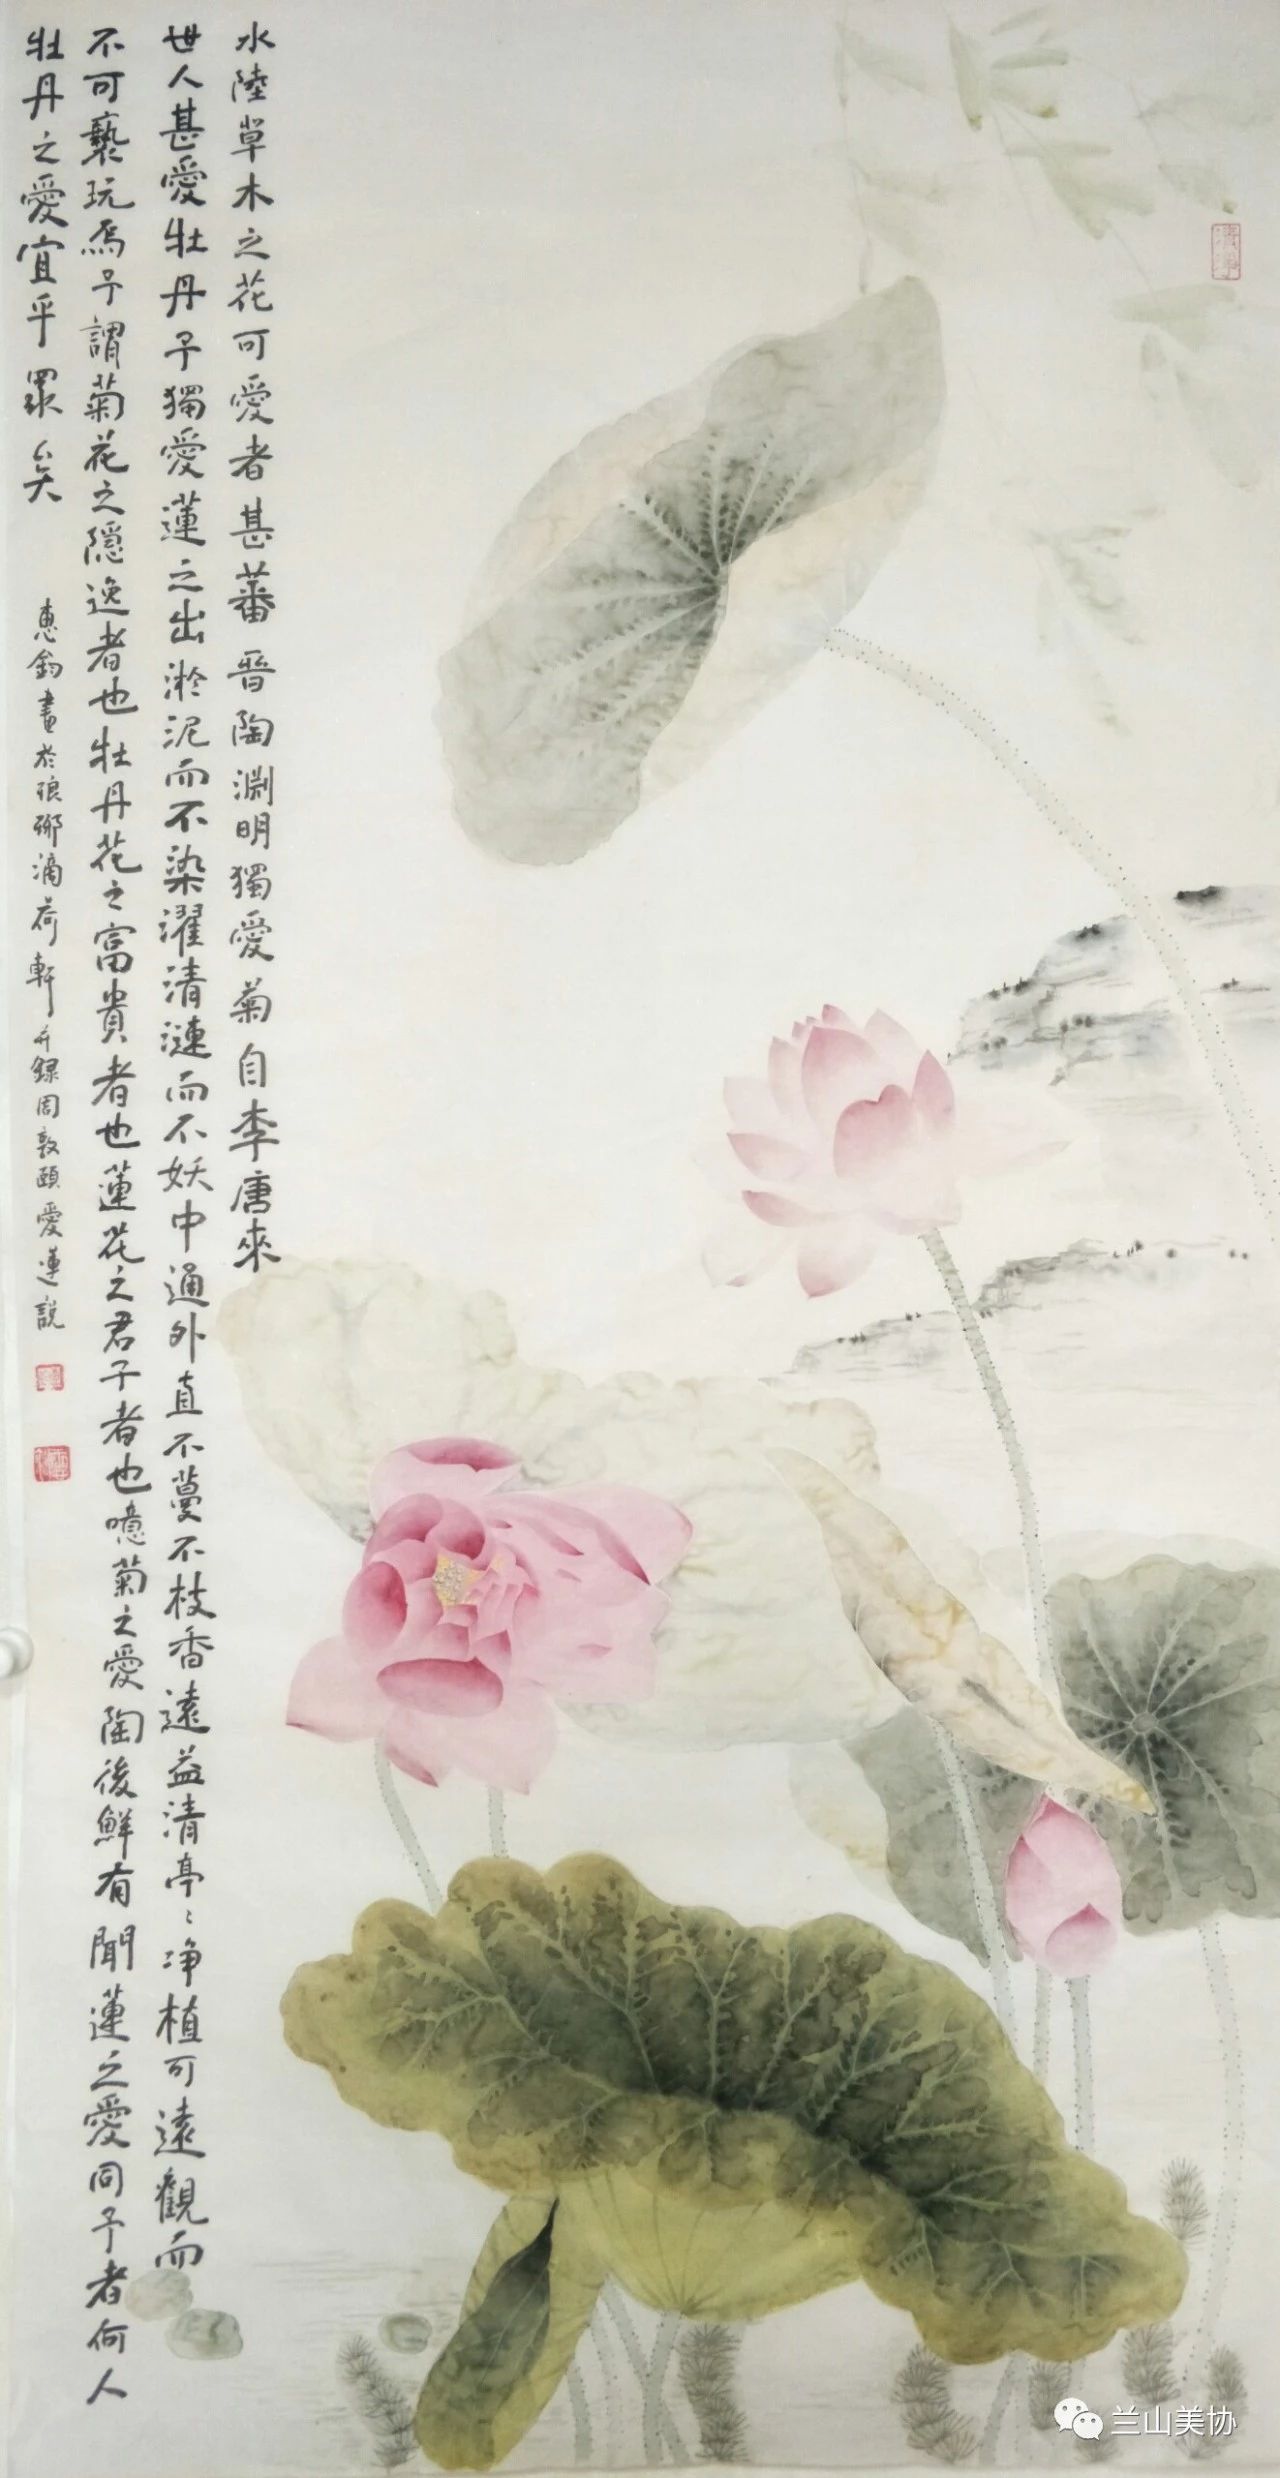 水陸草木之花可愛者甚蕃晉陶淵明獨愛菊自李唐來
世人甚愛牡丹予獨愛蓮之出淤泥而不染濯清漣而不妖中通外直不蔓不枝香遠益清亭〻淨植可遠觀而
不可褻玩焉予謂菊花之隱逸者也牡丹花之富貴者也蓮花之君子者也噫菊之愛陶後鮮有聞蓮之愛同予者何人
牡丹之愛宜乎眾矣
惠鈞畫於琅琊滴荷軒并録周敦頤愛蓮說
兰山美协